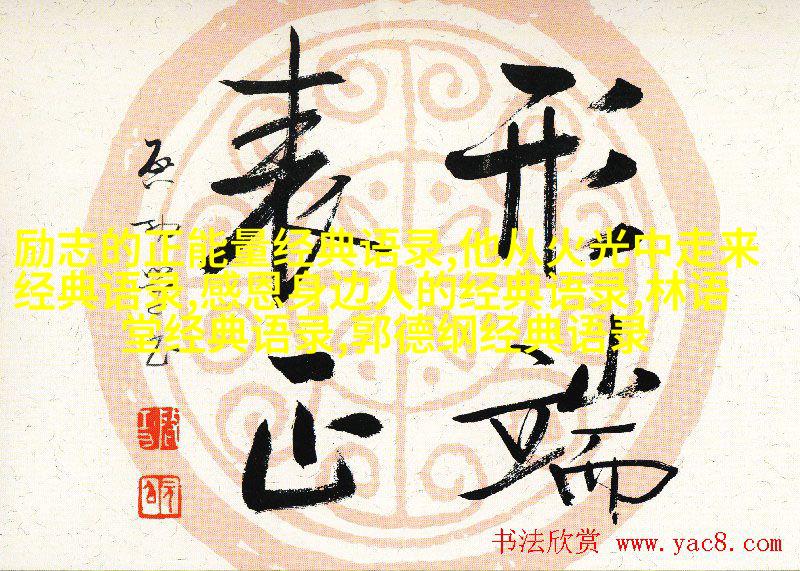 形端
表正
励志的正能量经典语录,他从火光中走来
经典语录,感恩身边人的经典语录,林语
堂经典语录,郭德纲经典语录
书法欣赏 www.yac8.com